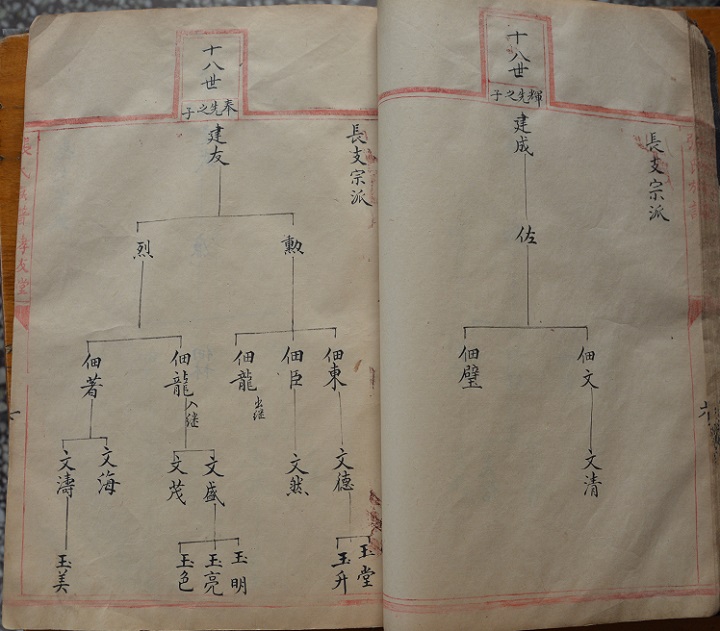 十八世
輝先之子
長支宗派
建成
佐
佃文
佃璧
文清
十八世
奉先之子
長支宗派
建友
勲
烈
佃東
佃臣
佃龍
出继
佃龍
入继
佃著
文德
文然
文盛
文茂
文海
文濤
玉堂
玉升
玉明
玉亮
玉色
玉美